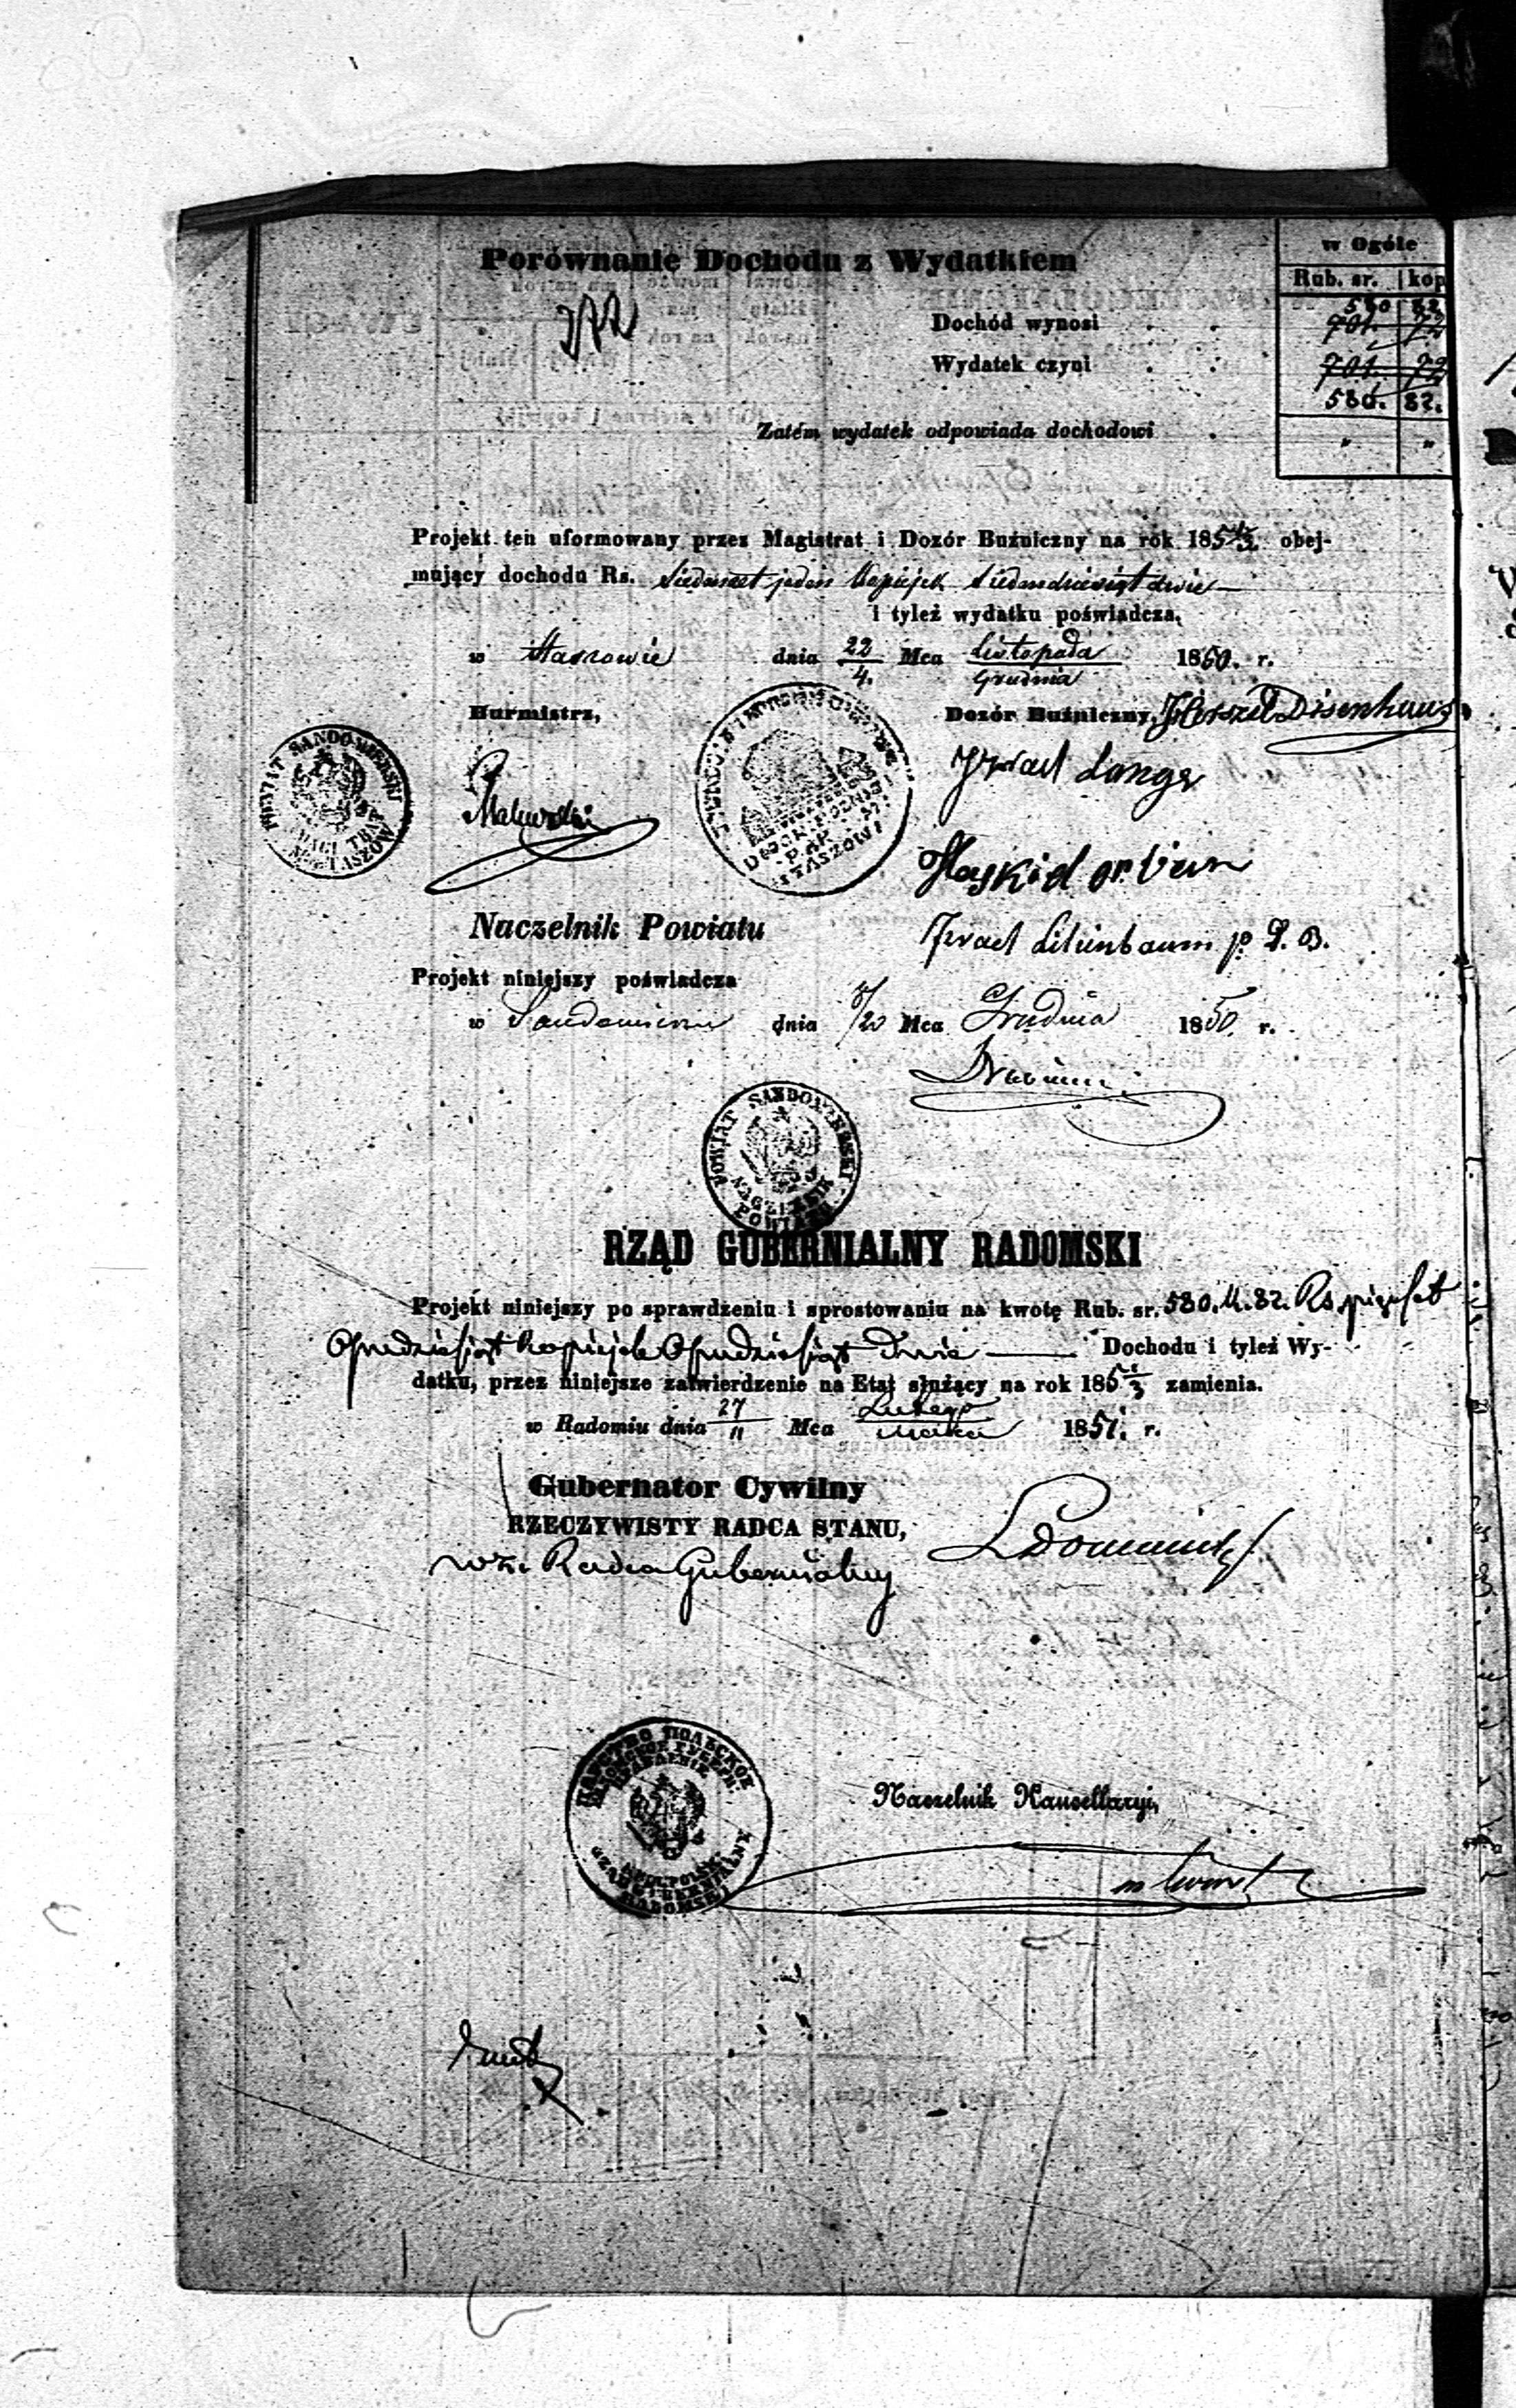 Porównanie Dochodu z Wydatkiem
w Ogóle
Rub. sr. kop
580 82
Dochód wynosi . . 701. 72
Wydatek czyni . . 701. 72
580. 82.
Zatém wydatek odpowiada dochodowi . " "
Projekt ten uformowany przez Magistrat i Dozór Buźniczny na rok 185 1/3 obej-
mujący dochodu Rs. Siedmset jeden Kopiejek Siedmdziesiąt dwie
i tyleż wydatku poświadcza,
w Staszowie dnia 22/4. Mca Listopada/Grudnia 1850. r.
Burmistrz, Dozór Buźniczny, Herszel Disenhaus
Izrael Langer
Malewski
POWIAT SANDOMIERSKI
STASZOW
Naczelnik Powiatu
Izrael Lilienbaum p. D. B.
Projekt niniejszy poświadcza
w Sandomierzu dnia 8/20 Mca Grudnia 1850 r.
POWIAT SANDOMIERSKI
NACZELNIK
POWIATU
RZĄD GUBERNIALNY RADOMSKI
Projekt niniejszy po sprawdzeniu i sprostowaniu na kwotę Rub. sr. 580. k. 82. Rs pięćset
Ośmdziesiąt kopiejek Ośmdziesiąt Dwie Dochodu i tyleż Wy-
datku, przez niniejsze zatwierdzenie na Etat służący na rok 185 1/3 zamienia.
w Radomiu dnia 27/11 Mca Lutego/Marca 1851. r.
Gubernator Cywilny
RZECZYWISTY RADCA STANU,
wz. Radca Gubernialny
Naczelnik Kancellaryi,